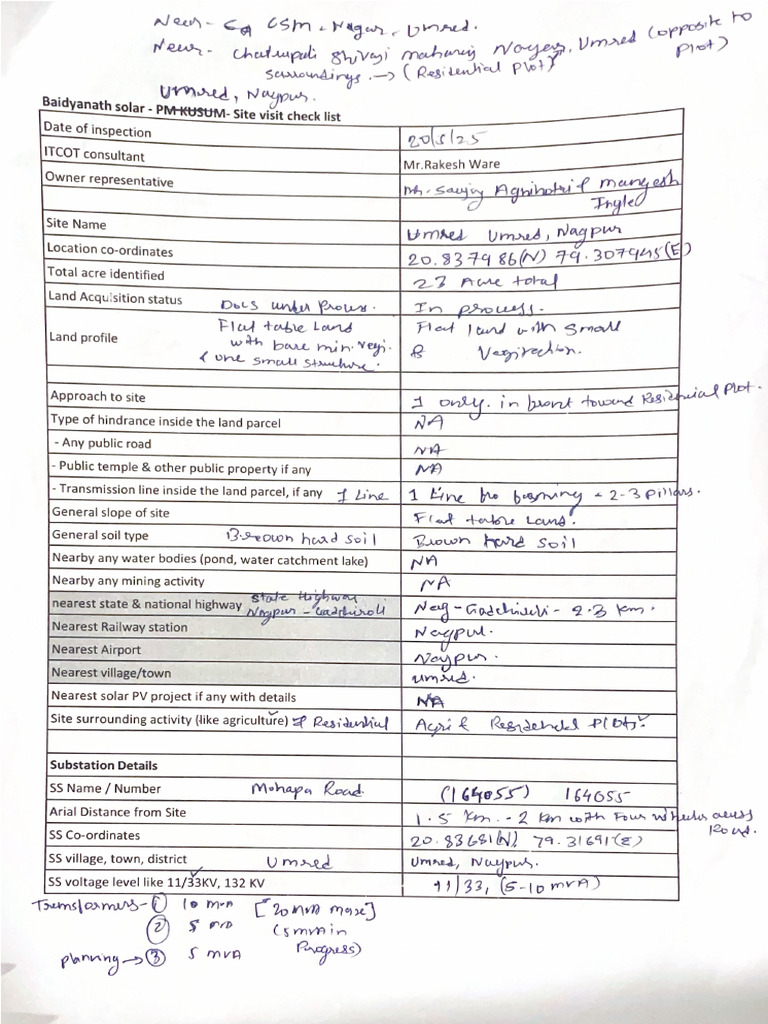 Near - CSM - Nagar, Umred.
Near - Chatrapati Shivaji maharaj Nagar, Umred (opposite to Plot)
surroundings. → (Residential Plot)
Umred, Nagpur.
Baidyanath solar - PM KUSUM- Site visit check list
Date of inspection 20/5/25
ITCOT consultant Mr.Rakesh Ware
Owner representative Mr. Sanjay Agnihotri & Mangesh
Ingle
Site Name Umred Umred, Nagpur
Location co-ordinates 20.837986(N) 79.307945(E)
Total acre identified 23 Acre total
Land Acquisition status Docs under Proces. In process.
Land profile Flat table Land Flat land with small
with bare min. vegi. & Vegitation.
& one small structure.
Approach to site 1 only. in front toward Residencial Plot.
Type of hindrance inside the land parcel NA
- Any public road NA
- Public temple & other public property if any NA
- Transmission line inside the land parcel, if any 1 Line 1 Line - 2-3 Pillars.
General slope of site Flat table Land.
General soil type Brown hard soil Brown hard soil
Nearby any water bodies (pond, water catchment lake) NA
Nearby any mining activity NA
nearest state & national highway State Highway Nagpur - Gadchiroli Nag - Gadchiroli - 2.3 km.
Nearest Railway station Nagpur.
Nearest Airport Nagpur.
Nearest village/town Umred.
Nearest solar PV project if any with details NA
Site surrounding activity (like agriculture) & Residential Agri & Residencial Plots.
Substation Details
SS Name / Number Mohapa Road. (164055) 164055
Arial Distance from Site 1.5 km. - 2 km with Four wheeler access
Road.
SS Co-ordinates 20.83681(N), 79.31691(E)
SS village, town, district Umred Umred, Nagpur.
SS voltage level like 11/33KV, 132 KV 11/33, (5-10 MVA)
Transformers - ① 10 MVA [20 MVA max]
② 5 MVA (5 MVA in
Progress)
planning → ③ 5 MVA